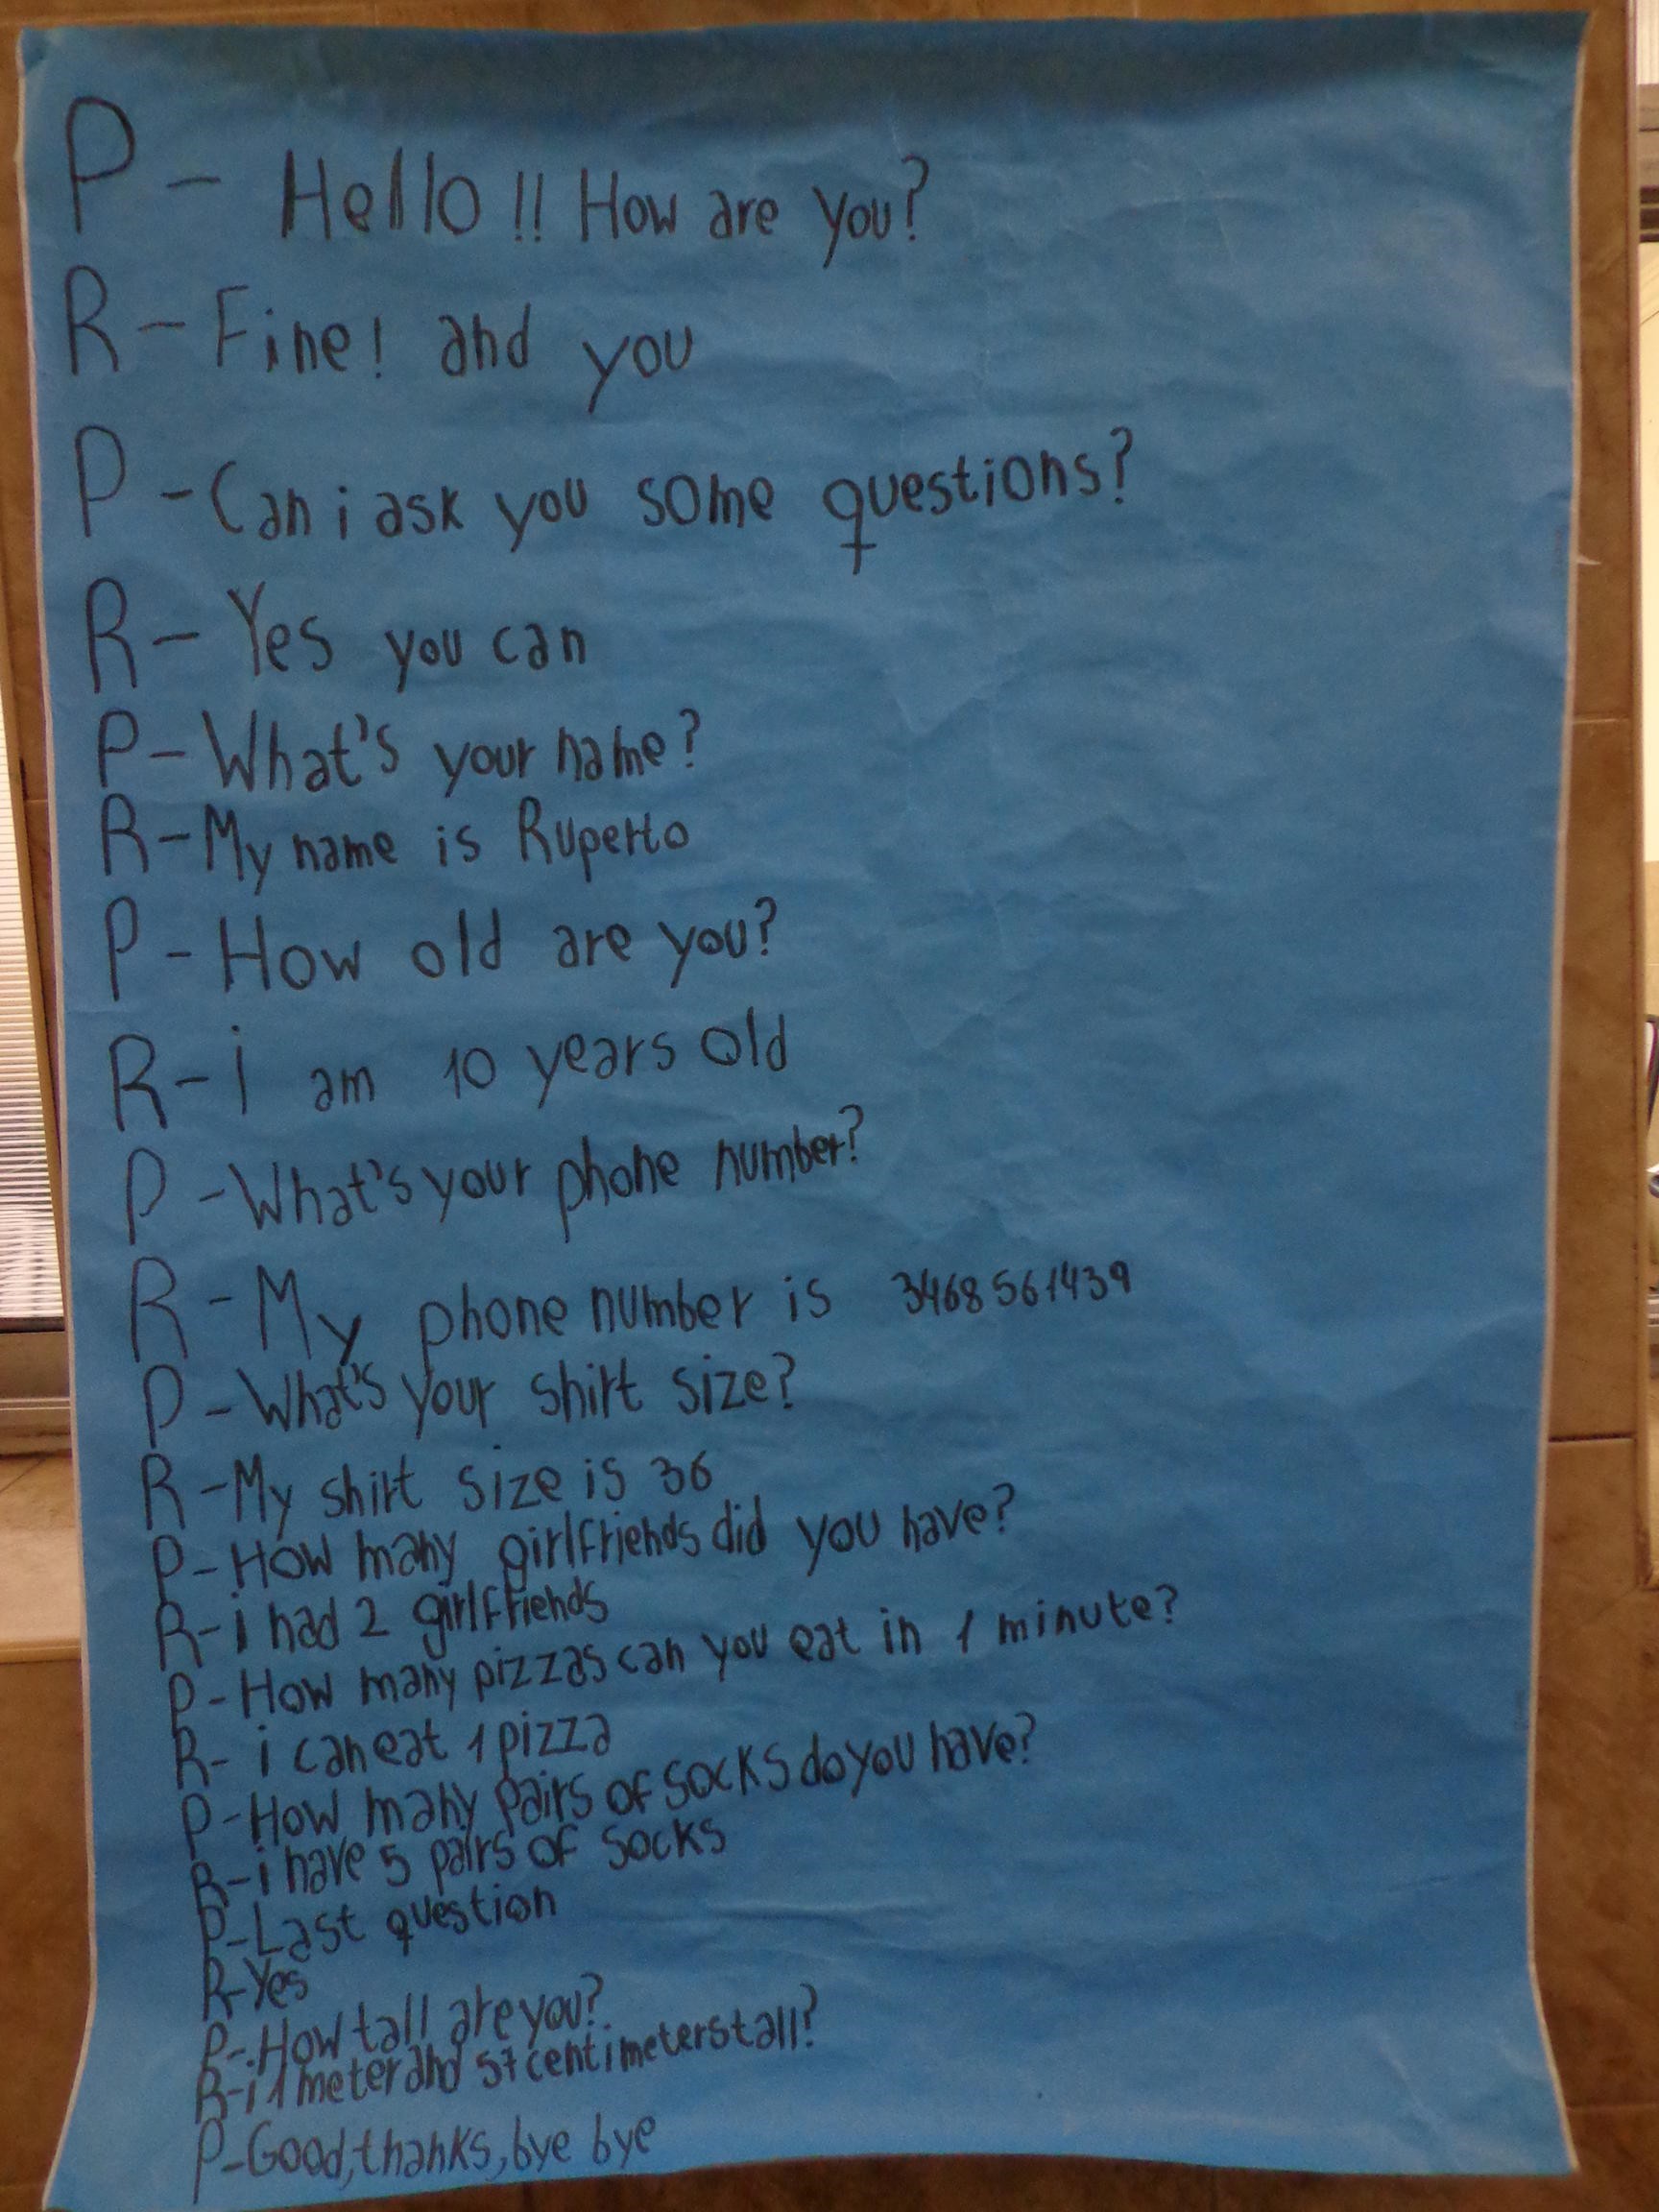 P- Hello!! How are you?
R- Fine! and you
P- Can i ask you some questions?
R- Yes you can
P- What's your name?
R- My name is Ruperto
P- How old are you?
R- i am 10 years old
P- What's your phone number?
R- My phone number is 3468561439
P- What's your shirt size?
R- My shirt size is 36
P- How many girlfriends did you have?
R- i had 2 girlfriends
P- How many pizzas can you eat in 1 minute?
R- i can eat 1 pizza
P- How many pairs of socks do you have?
R- i have 5 pairs of socks
P- Last question
R- Yes
P- How tall are you?
R- i 1 meter and 57 centimeters tall?
P- Good, thanks, bye bye